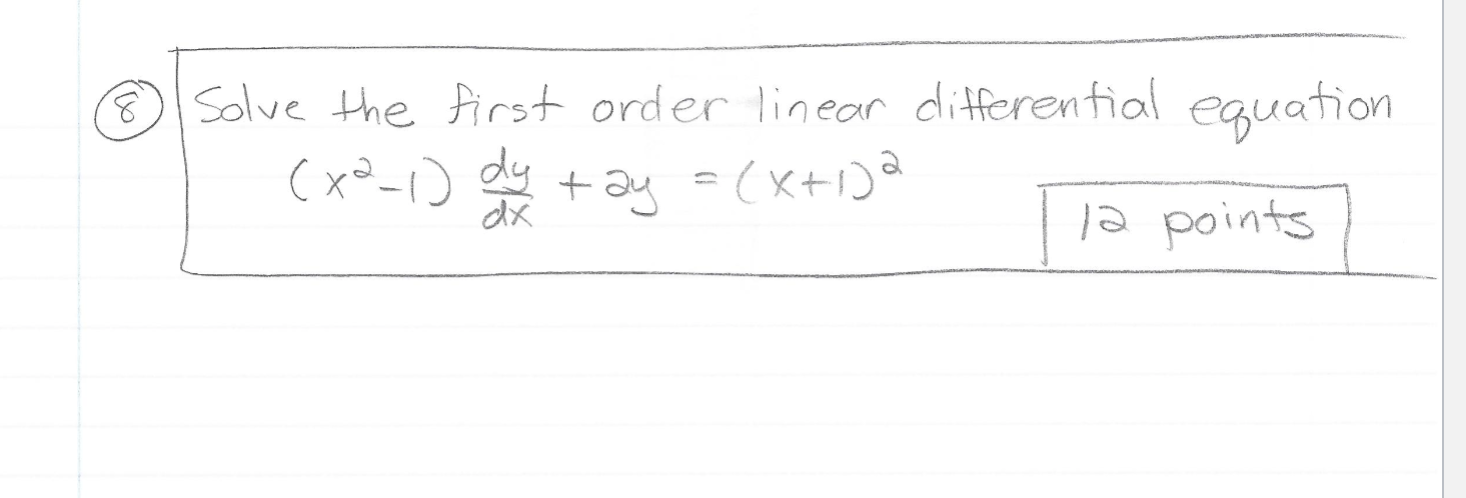 ⑧ Solve the first order linear differential equation
(x²-1) dy/dx + 2y = (x+1)²
12 points